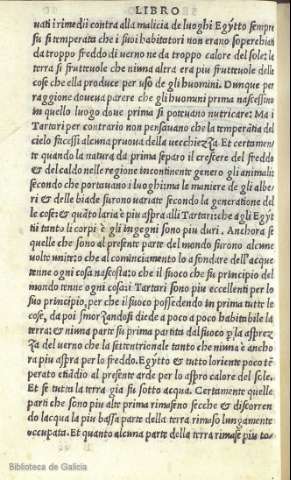 LIBRO
uati i rimedii contra alla malicia de luoghi Egytto sempre
fu si temperata che i suoi habitatori non erano soperchiati
da troppo freddo di uerno ne da troppo calore del sole: la
terra si fruttuole che niuna altra era piu fruttuole delle
cose che ella produce per uso de gli huomini. Dunque per
raggione doueua parere che gli huomini prima nascessino
in quello luogo doue prima si potuano nutricare: Ma i
Tartari per contrario non pensauano che la temperātia del
cielo ficessi alcuna pruoua della uecchiezza Et certamen-
te quando la natura da prima separo il crescere del freddo
& del caldo nelle regione incontinente genero gli animali:
secondo che portauano i luoghi: ma le muniere de gli albe-
ri & delle biade furono uariate secondo la generatione del
le cose: & quāto laria è piu aspra alli Tartari: che agli Egyt
tii tanto li corpi è gli ingegni sono piu duri. Anchora se
quelle che sono al presente parte del mondo furono alcune
uolte unite: o che al cominciamento lo a fondare dell'acque
tenne ogni cosa nascosta: o che il fuoco che fu principio del
mondo tenne ogni cosa: i Tartari sono piu eccellenti per lo
suo principio, per che il fuoco possedendo in prima tutte le
cose, da poi smorzandosi diede a poco a poco habitabile la
terra: & niuna parte fu prima partita dal fuoco p̱ la aspreẓ
za del uerno che la settentrionale tanto che niuna è ancho
ra piu aspra per lo freddo. Egytto & tutto loriente poco tē
perato etiādio al presente arde per lo aspro calore del sole.
Et se tutta la terra gia fu sotto acqua. Certamente quelle
parti che sono piu alte prima rimaseno secche & discorren
do lacqua la piu bassa parte della terra rimaso lungamente
occupata. Et quanto alcuna parte della terra rimase piu to-
Biblioteca de Galicia